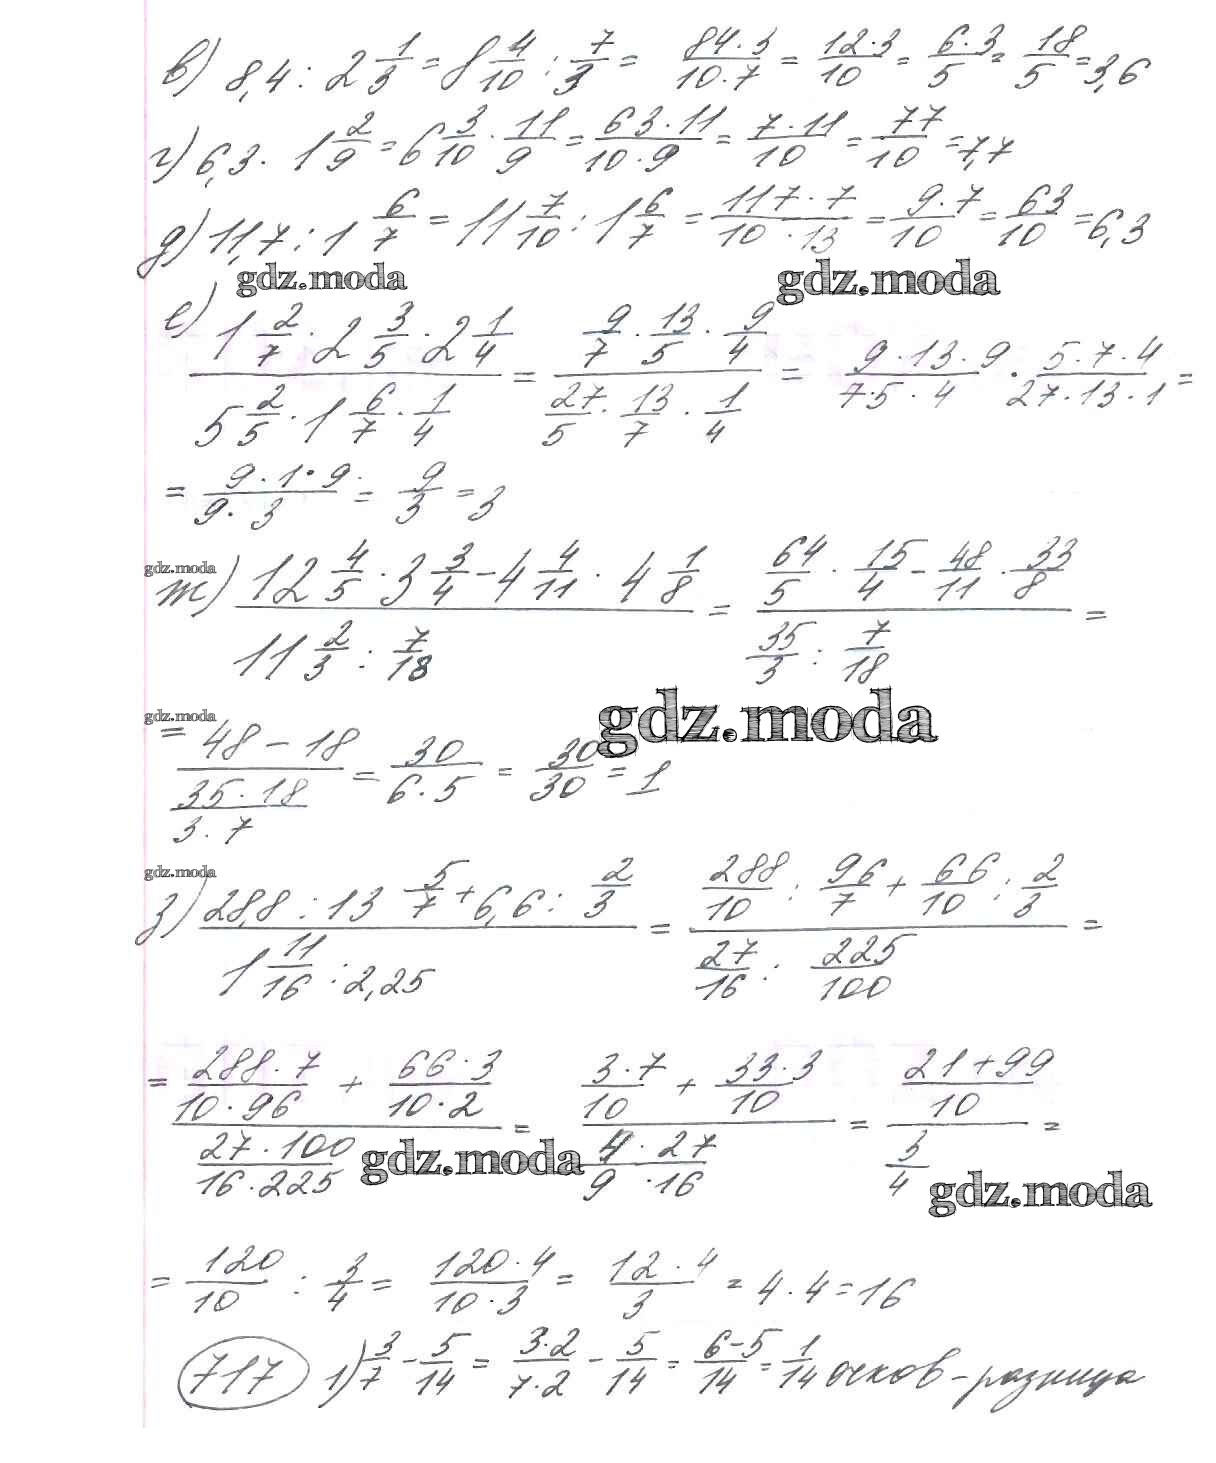 в) 8,4 : 2 1/3 = 8 4/10 : 7/3 = 84·3/10·7 = 12·3/10 = 6·3/5 = 18/5 = 3,6
г) 6,3 · 1 2/9 = 6 3/10 · 11/9 = 63·11/10·9 = 7·11/10 = 77/10 = 7,7
д) 11,7 : 1 6/7 = 11 7/10 : 1 6/7 = 117·7/10·13 = 9·7/10 = 63/10 = 6,3
gdz.moda gdz.moda
е) 1 2/7 · 2 3/5 · 2 1/4 / 5 2/5 · 1 6/7 · 1/4 = 9/7 · 13/5 · 9/4 / 27/5 · 13/7 · 1/4 = 9·13·9/7·5·4 · 5·7·4/27·13·1 =
= 9·1·9/9·3 = 9/3 = 3
gdz.moda
ж) 12 4/5 · 3 3/4 - 4 4/11 · 4 1/8 / 11 2/3 : 7/18 = 64/5 · 15/4 - 48/11 · 33/8 / 35/3 : 7/18 =
gdz.moda gdz.moda
= 48 - 18 / 35·18/3·7 = 30/6·5 = 30/30 = 1
gdz.moda
з) 28,8 : 13 5/7 + 6,6 : 2/3 / 1 11/16 : 2,25 = 288/10 : 96/7 + 66/10 : 2/3 / 27/16 : 225/100 =
= 288·7/10·96 + 66·3/10·2 / 27·100/16·225 = 3·7/10 + 33·3/10 / 4·27/9·16 = 21+99/10 / 3/4 =
gdz.moda gdz.moda
= 120/10 : 3/4 = 120·4/10·3 = 12·4/3 = 4·4 = 16
717 1) 3/7 - 5/14 = 3·2/7·2 - 5/14 = 6-5/14 = 1/14 очков - разница